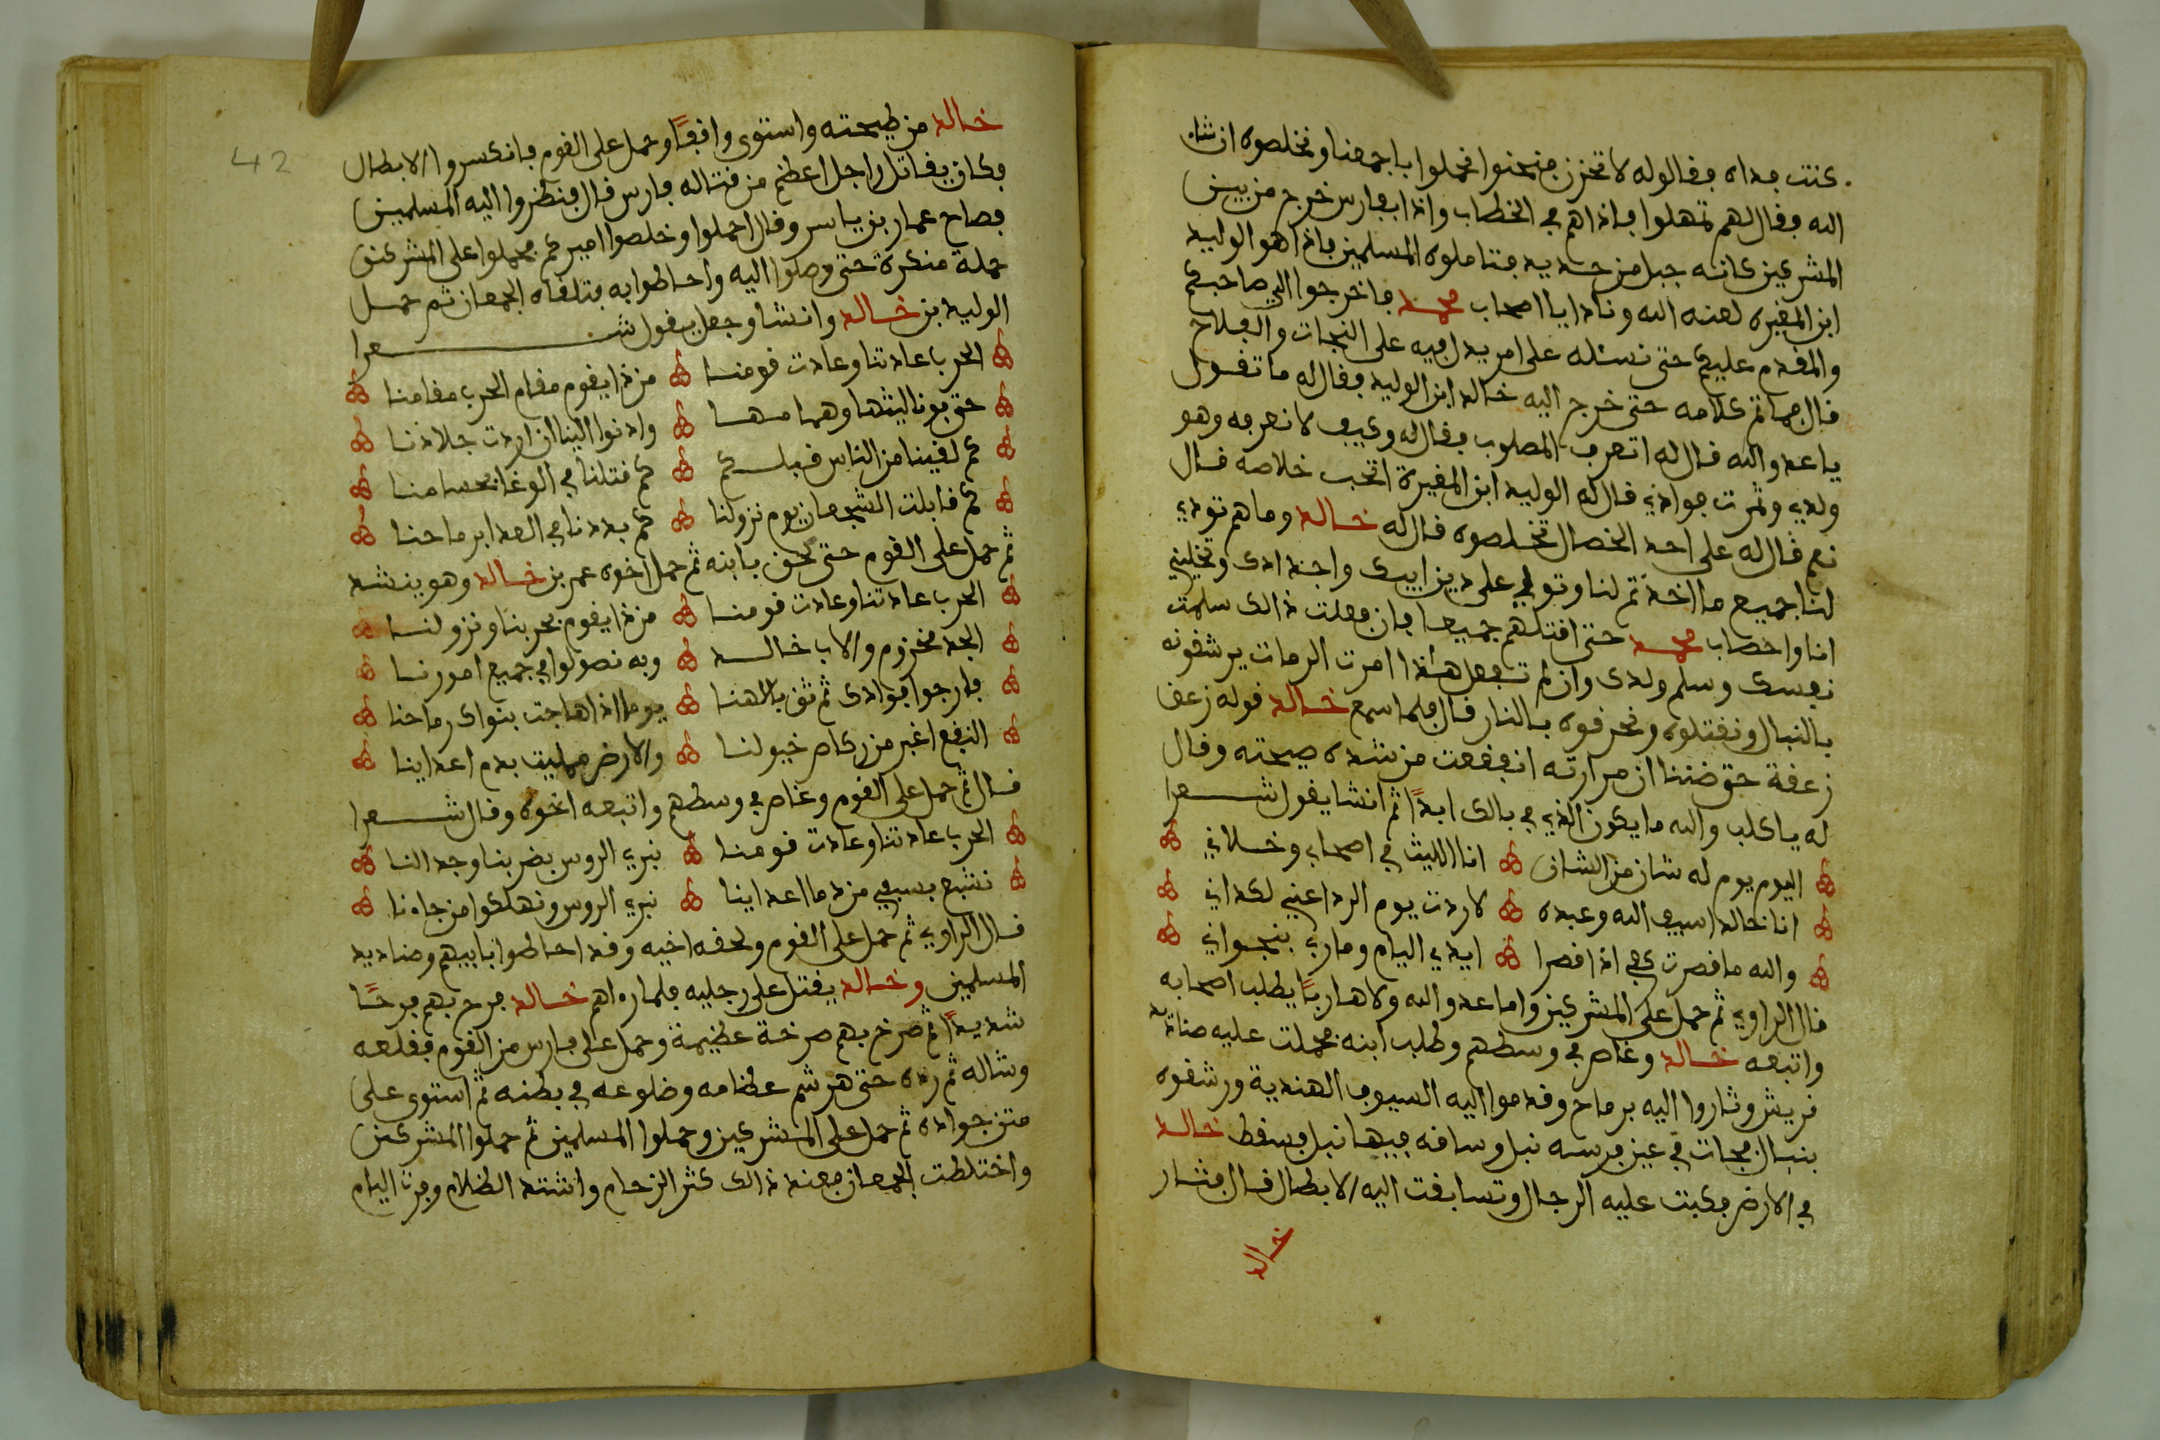 كنت فداه فقالوله لا تحزن فنحنوا نحملوا باجمعنا ونخلصوه ان شا
الله فقال لهم تمهلوا فاذاهم في الخطاب واذا بفارس خرج من بين
المشركين كانه جبل من حديد فتاملوه المسلمين فاذا هو الوليد
ابن المغيره لعنه الله ونادا يا اصحاب محمد فاخرجوا الي صاحبكم
والمقدم عليكم حتى نسئله على امر يدل فيه على النجات والفلاح
قال فما تم كلامه حتى خرج اليه خالد ابن الوليد فقال له ما تقول
يا عدو الله قال له اتعرف المصلوب فقال له وكيف لا نعرفه وهو
ولدي وثمرت فوادي قال له الوليد ابن المغيرة اتحب خلاصه قال
نعم قال له على احد الخصال تخلصوه قال له خالد وما هم تودي
لنا جميع ما اخذتم لنا وتولي على دين ابيك واجدادك وتخليني
انا واصحاب محمد حتى اقتلهم جميعا فان فعلت ذالك سلمت
نفسك وسلم ولدك وان لم تفعل هذا امرت الرمات يرشقونه
بالنبال ونقتلوه ونحرقوه بالنار قال فلما سمع خالد قوله زعق
زعقة حتى ضننا ان مرارته انفقعت من شده صيحته وقال
له يا كلب والله ما يكون الذي في بالك ابدًا ثم انشا يقول شعرا
اليوم يوم له شان من الشان انا الليث في اصحابي وخلاني
انا خالد اسيف الله وعبده لاردت يوم الردا عني لكداني
والله ما قصرت كفي اذا قصرا ايدي اليام وماري بنجواني
قال الراوي ثم حمل على المشركين واما عدو الله ولا هاربًا يطلب اصحابه
واتبعه خالد وغاص في وسطهم وطلب ابنه فحملت عليه صناديد
قريش وثاروا اليه برماح وقدموا اليه السيوف الهندية ورشقوه
بنبال فجات في عين فرسه نبل وسافه فيبها نبل فسقط خالد
في الارض فكبت عليه الرجال وتسابقت اليه الابطال قال فثار
خالد
42
خالد من طيحته واستوى واقفًا وحمل على القوم فانكسروا الابطال
فكان يقاتل راجل اعظم من قتاله فارس قال فنظروا اليه المسلمين
فصاح عمار بن ياسر وقال احملوا وخلصوا اميركم فحملوا على المشركين
حملة منكرة حتى وصلوا اليه واحاطوا به فتلقاه الجمعان ثم حمل
الوليد بن خالد وانشا وجعل يقول شعرا
الحرب عادتنا وعادت قومنا من ذا يقوم مقام الحرب مقامنا
حتى فونا ليثها وهمامها وادنوا الينا ان اردت جلادنا
كم لقينا من الناس قبلكم كم قتلنا في الوغا بحسامنا
كم قابلت الشجعان يوم نزولنا كم بددنا في العدا برماحنا
ثم حمل على القوم حتى لحق بابنه ثم حمل اخوه عمر بن خالد وهو ينشد
الحرب عادتنا وعادت قومنا من ذا يقوم بحربنا ونزولنا
الجد مخزوم والاب خالد وبه نصولوا في جميع امورنا
فارجوا فوادك ثم ثق بالهنا يوما اذا هاجت بنواك رماحنا
النقع اغبر من ركاض خيولنا والارض مليت بدم اعداينا
قال ثم حمل على القوم وغاص في وسطهم واتبعه اخوه وقال شعرا
الحرب عادتنا وعادت قومنا نبري الروس بضربنا وجدالنا
نشبع بسيفي من دما اعداينا نبري الروس ونهلكوا من جاءنا
قال الراوي ثم حمل على القوم ولحقه اخيه وقد احاطوا بابيهم وصناديد
المسلمين وخالد يقتل على رجليه فلما راهم خالد فرح بهم فرحًا
شديدًا ثم صرخ بهم صرخة عظيمة وحمل على فارس من القوم فقلعه
وشاله ثم رده حتى هرشم عظامه وضلوعه في بطنه ثم استوى على
متن جواده ثم حمل على المشركين وحملوا المسلمين ثم حملوا المشركين
واختلطت الجمعان فعند ذالك كثر الزحام واشتد الظلام وفرت اليام